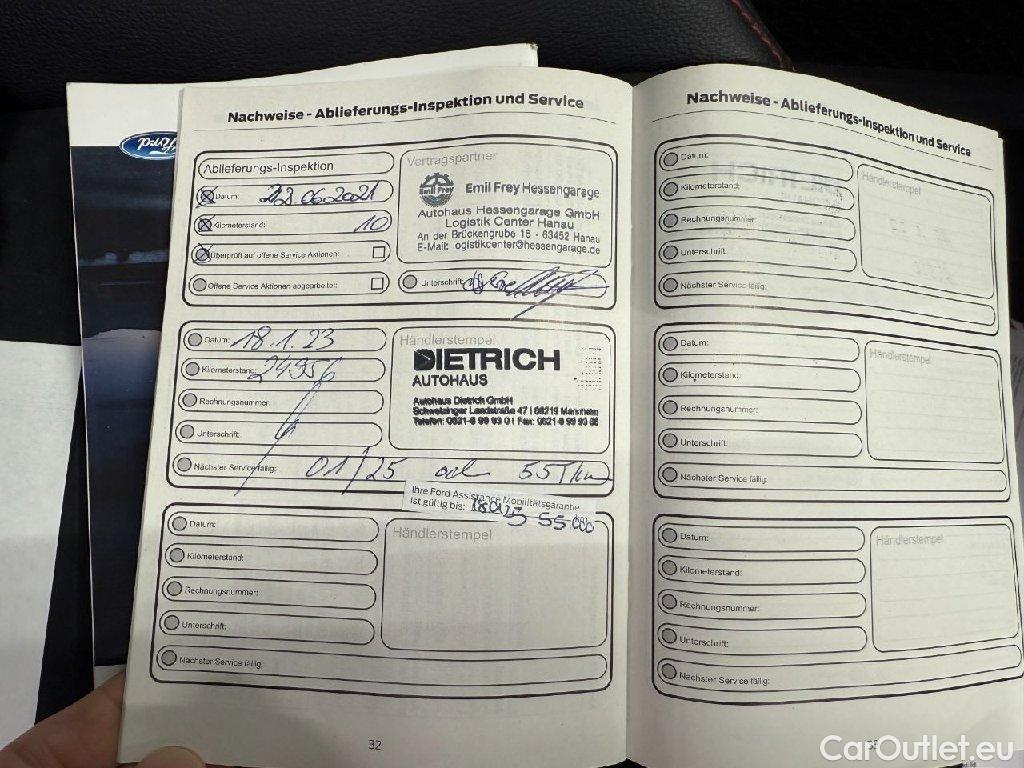 Ford
Nachweise - Ablieferungs-Inspektion und Service
Ablieferungs-Inspektion
Datum: 23.06.2021
Kilometerstand: 10
Überprüft auf offene Service Aktionen:
Offene Service Aktionen abgearbeitet:
Vertragspartner
Emil Frey
Emil Frey Hessengarage
Autohaus Hessengarage GmbH
Logistik Center Hanau
An der Brückengrube 15 - 63452 Hanau
E-Mail: logistikcenter@hessengarage.de
Unterschrift:
Datum: 18.1.23
Kilometerstand: 24956
Rechnungsnummer:
Unterschrift:
Nächster Service fällig: 01/25 od 55Tkm
Händlerstempel
DIETRICH
AUTOHAUS
Autohaus Dietrich GmbH
Schwetzinger Landstraße 47 | 68219 Mannheim
Telefon: 0621-8 99 93 01 Fax: 0621-8 99 93
Ihre Ford Assistance Mobilitätsgarantie
ist gültig bis: 55.000
Datum:
Kilometerstand:
Rechnungsnummer:
Unterschrift:
Nächster Service fällig:
Händlerstempel
32
Nachweise - Ablieferungs-Inspektion und Service
Datum:
Kilometerstand:
Rechnungsnummer:
Unterschrift:
Nächster Service fällig:
Händlerstempel
Datum:
Kilometerstand:
Rechnungsnummer:
Unterschrift:
Nächster Service fällig:
Händlerstempel
Datum:
Kilometerstand:
Rechnungsnummer:
Unterschrift:
Nächster Service fällig:
Händlerstempel
CarOutlet.eu